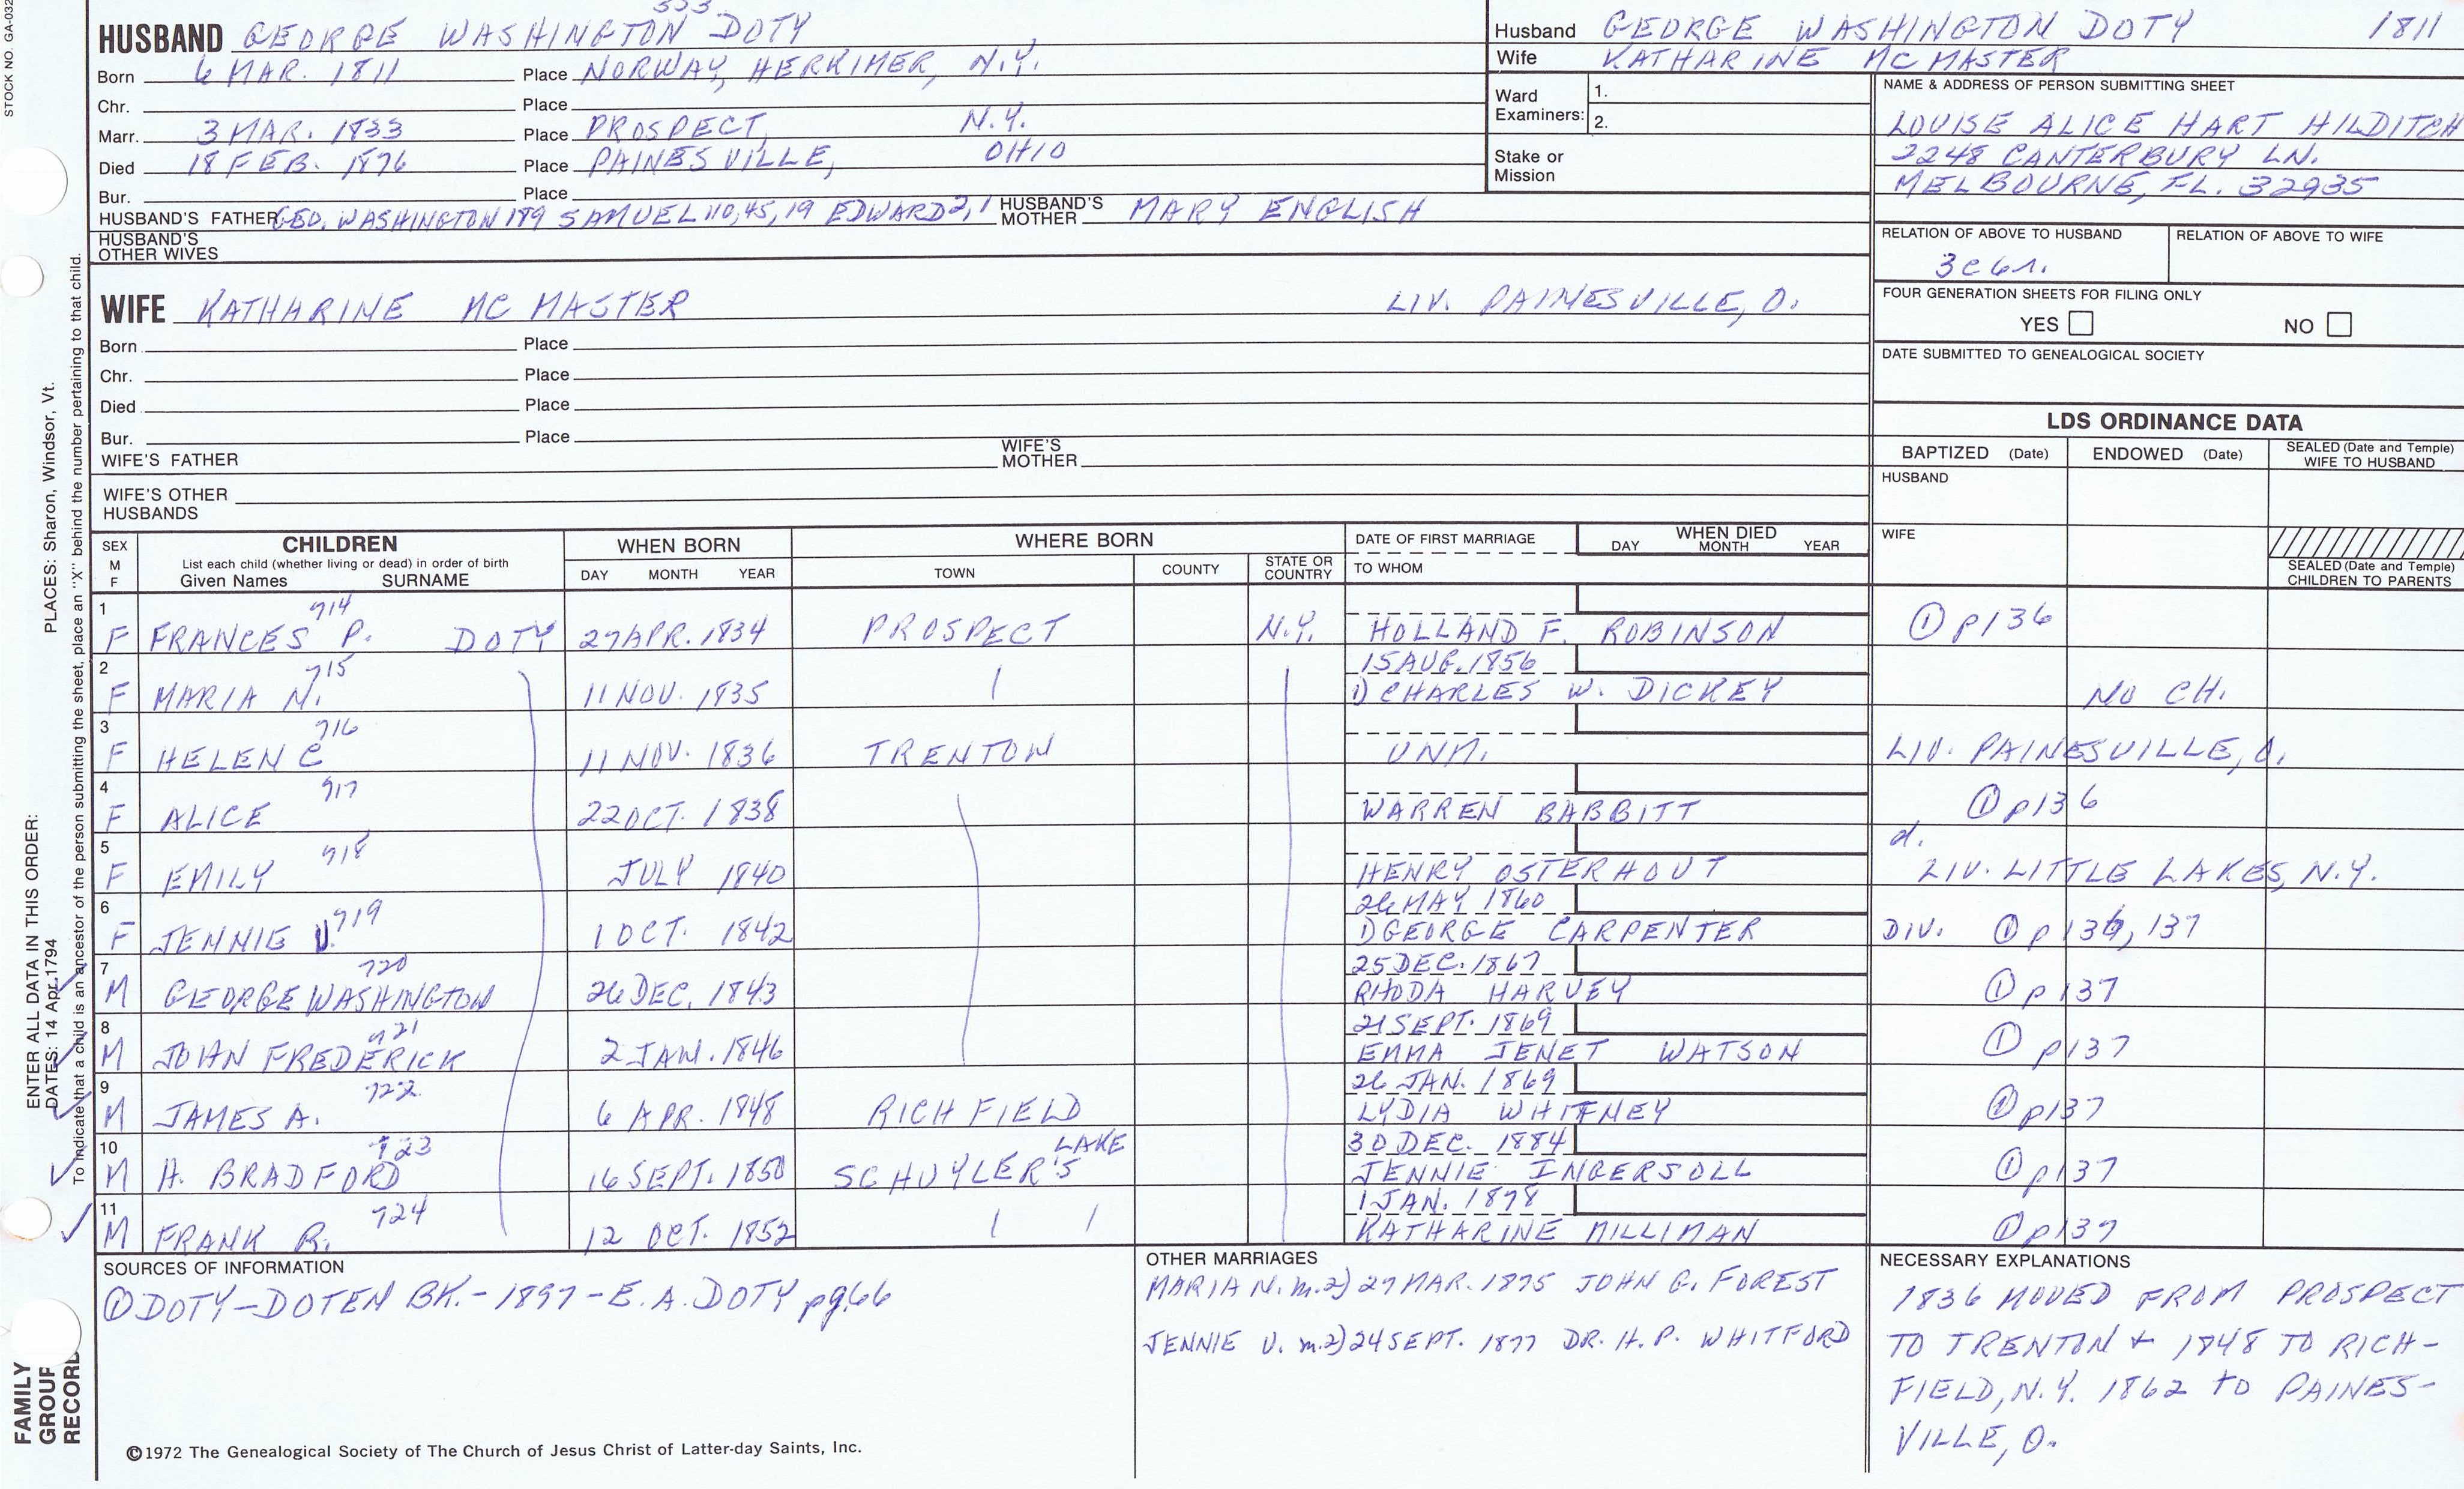 STOCK NO. GA-032
333
HUSBAND GEORGE WASHINGTON DOTY
Born 6 MAR. 1811 Place NORWAY, HERKIMER, N.Y.
Chr. Place
Marr. 3 MAR. 1833 Place PROSPECT, N.Y.
Died 18 FEB. 1876 Place PAINESVILLE, OHIO
Bur. Place
HUSBAND'S FATHER GEO. WASHINGTON 189 SAMUEL 110, 45, 19 EDWARD 2, 1 HUSBAND'S MOTHER MARY ENGLISH
HUSBAND'S OTHER WIVES
Husband GEORGE WASHINGTON DOTY 1811
Wife KATHARINE MC MASTER
Ward Examiners: 1.
2.
Stake or Mission
NAME & ADDRESS OF PERSON SUBMITTING SHEET
LOUISE ALICE HART HILDITCH
2248 CANTERBURY LN.
MELBOURNE, FL. 32935
RELATION OF ABOVE TO HUSBAND RELATION OF ABOVE TO WIFE
3c6r.
FOUR GENERATION SHEETS FOR FILING ONLY
YES NO
DATE SUBMITTED TO GENEALOGICAL SOCIETY
WIFE KATHARINE MC MASTER LIV. PAINESVILLE, O.
Born Place
Chr. Place
Died Place
Bur. Place
WIFE'S FATHER WIFE'S MOTHER
WIFE'S OTHER HUSBANDS
LDS ORDINANCE DATA
BAPTIZED (Date) ENDOWED (Date) SEALED (Date and Temple) WIFE TO HUSBAND
HUSBAND
WIFE
SEALED (Date and Temple) CHILDREN TO PARENTS
SEX M F
CHILDREN
List each child (whether living or dead) in order of birth
Given Names SURNAME
WHEN BORN
DAY MONTH YEAR
WHERE BORN
TOWN COUNTY STATE OR COUNTRY
DATE OF FIRST MARRIAGE
TO WHOM
WHEN DIED
DAY MONTH YEAR
1 714
F FRANCES P. DOTY 27 APR. 1834 PROSPECT N.Y. HOLLAND F. ROBINSON ① p136
2 715 15 AUG. 1856
F MARIA N. 11 NOV. 1835 1) CHARLES W. DICKEY NO CH.
3 716
F HELEN C 11 NOV. 1836 TRENTON UNM. LIV. PAINESVILLE, O.
4 717
F ALICE 22 OCT. 1838 WARREN BABBITT ① p136
5 718 d.
F EMILY JULY 1840 HENRY OSTERHOUT LIV. LITTLE LAKES, N.Y.
6 719 26 MAY 1860
F JENNIE U. 1 OCT. 1842 1) GEORGE CARPENTER DIV. ① p136, 137
7 720 25 DEC. 1867
M GEORGE WASHINGTON 26 DEC. 1843 RHODA HARVEY ① p137
8 721 21 SEPT. 1869
M JOHN FREDERICK 2 JAN. 1846 EMMA JENET WATSON ① p137
9 722 26 JAN. 1869
M JAMES A. 6 APR. 1848 RICHFIELD LYDIA WHITNEY ① p137
10 723 LAKE 30 DEC. 1884
M H. BRADFORD 16 SEPT. 1850 SCHUYLER'S JENNIE INGERSOLL ① p137
11 724 1 JAN. 1878
M FRANK R. 12 OCT. 1852 KATHARINE MILLIMAN ① p137
SOURCES OF INFORMATION
① DOTY-DOTEN BK.-1897-E.A. DOTY pg.66
OTHER MARRIAGES
MARIA N. m.2) 27 MAR. 1875 JOHN G. FOREST
JENNIE U. m.2) 24 SEPT. 1877 DR. H. P. WHITFORD
NECESSARY EXPLANATIONS
1836 MOVED FROM PROSPECT
TO TRENTON + 1848 TO RICH-
FIELD, N.Y. 1862 TO PAINES-
VILLE, O.
©1972 The Genealogical Society of The Church of Jesus Christ of Latter-day Saints, Inc.
FAMILY
GROUP
RECORD
ENTER ALL DATA IN THIS ORDER:
DATES: 14 Apr. 1794
PLACES: Sharon, Windsor, Vt.
To indicate that a child is an ancestor of the person submitting the sheet, place an "X" behind the number pertaining to that child.